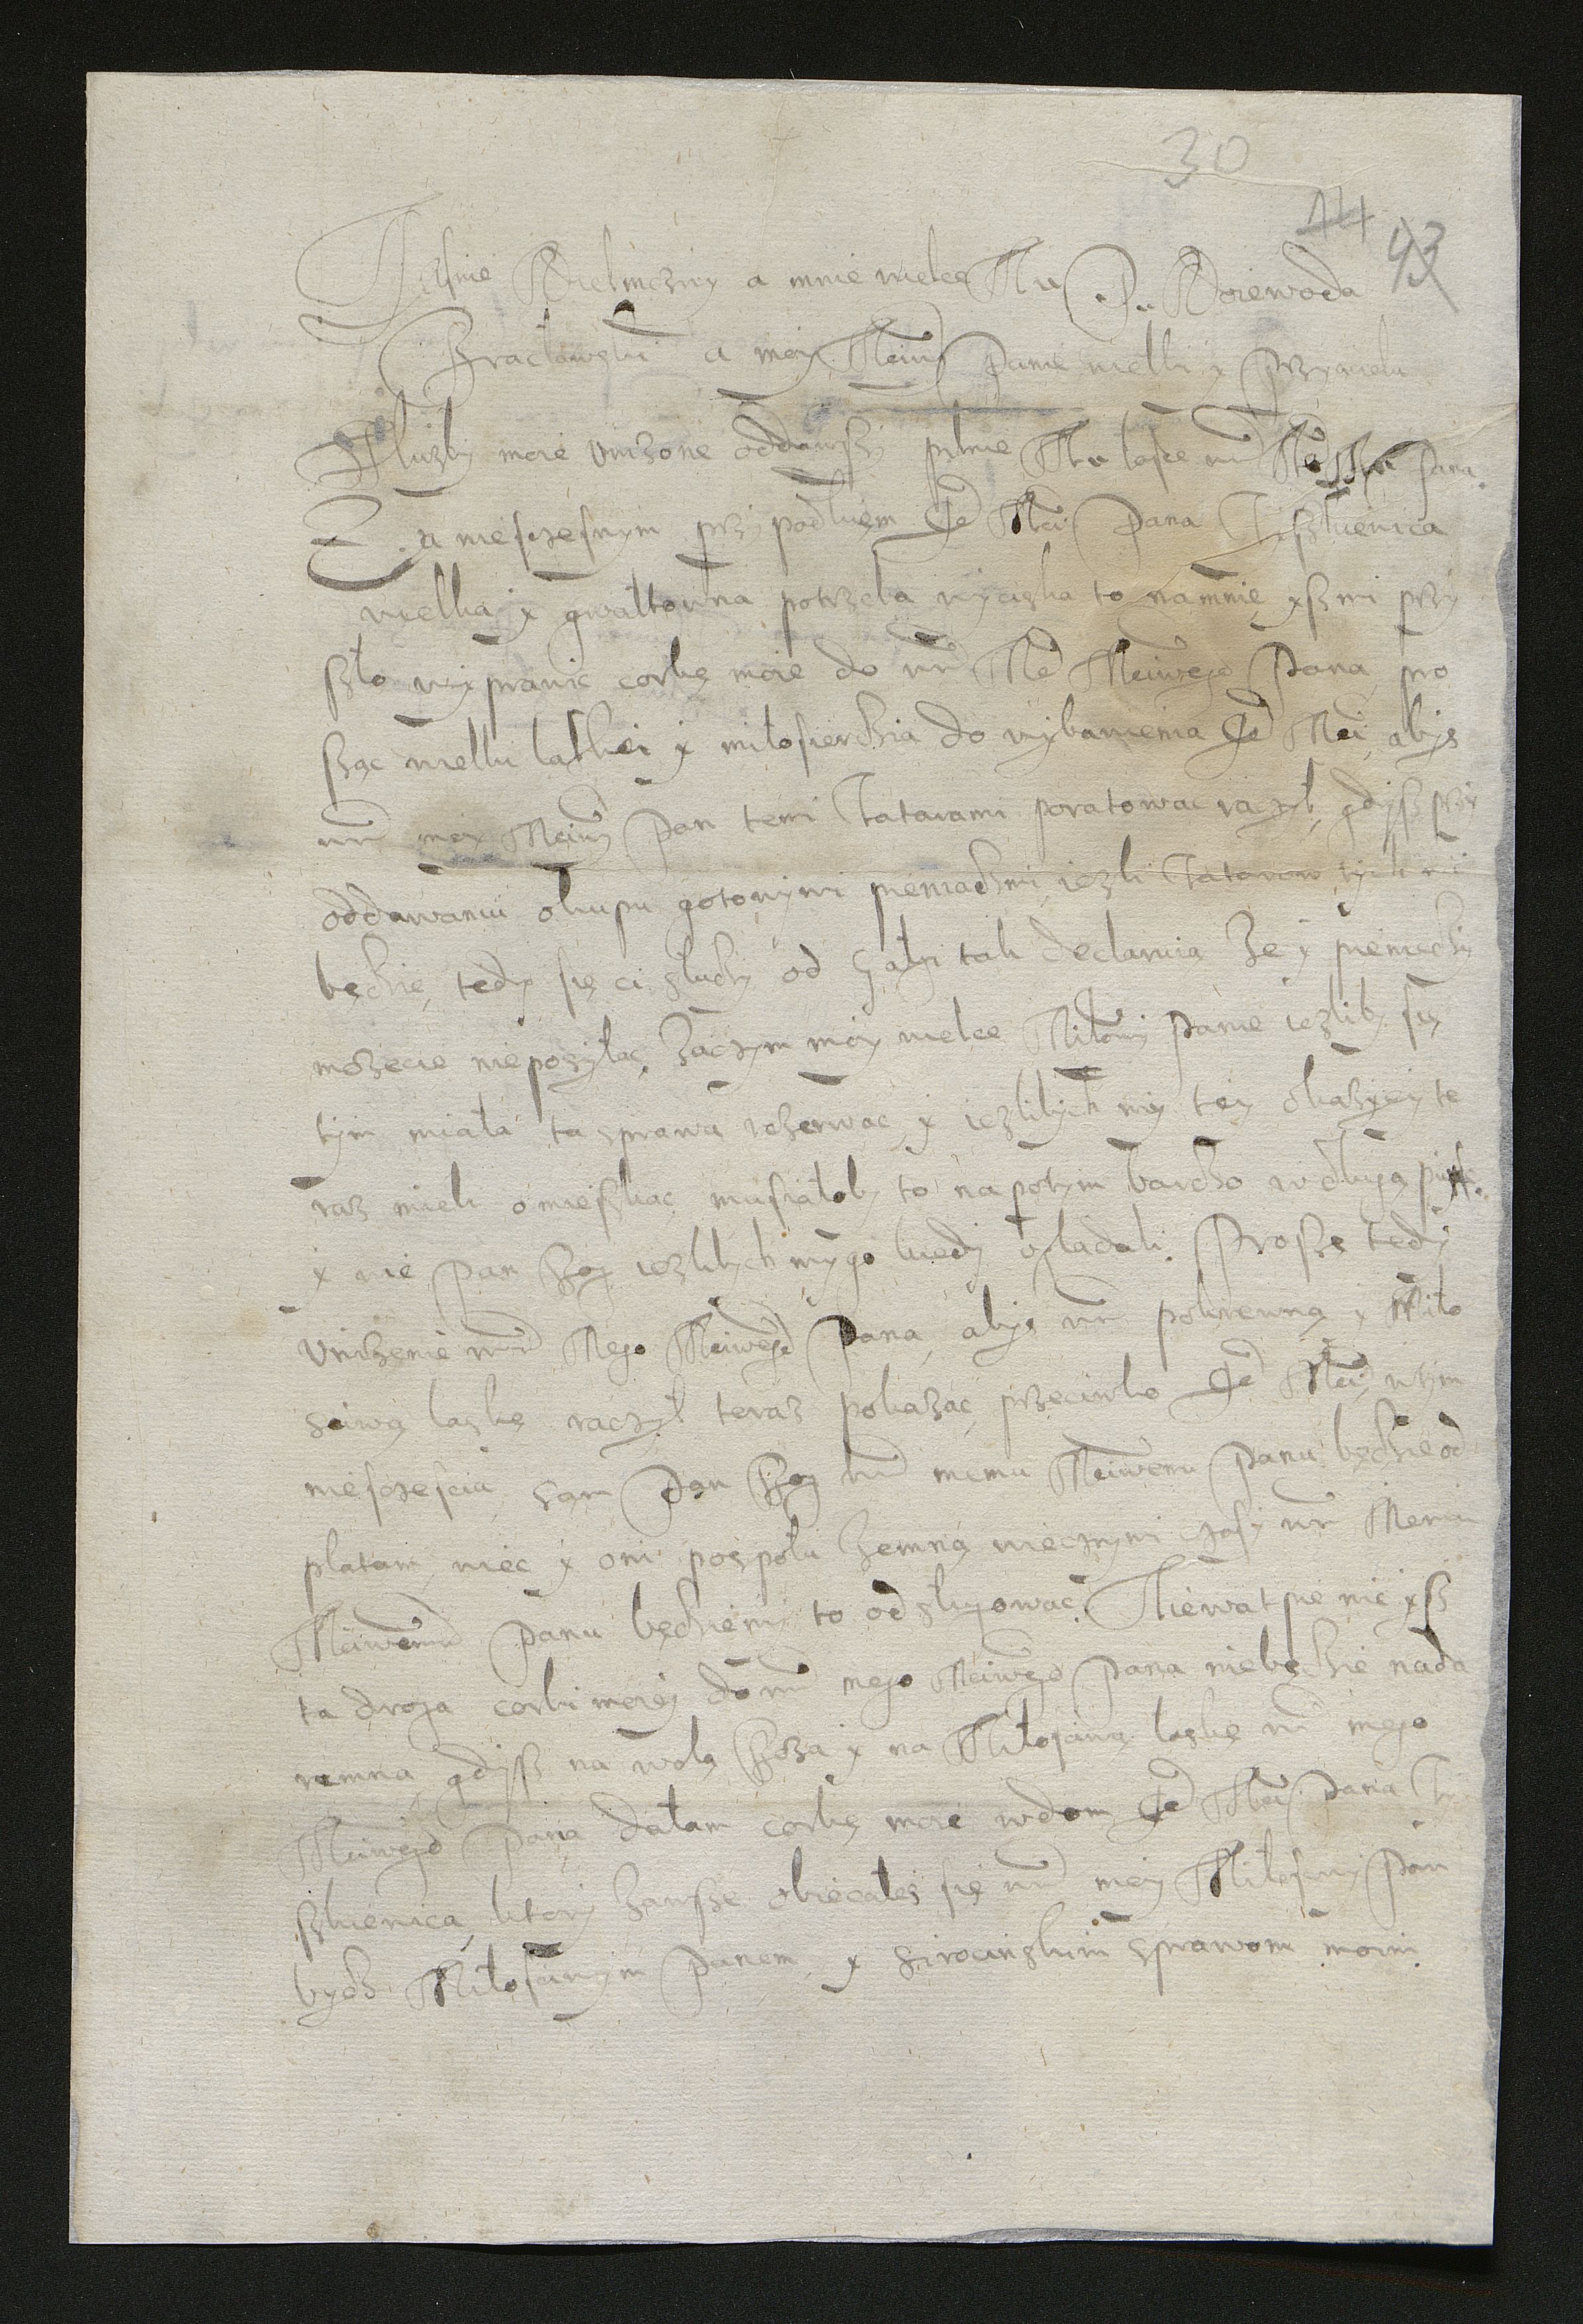 30
14 43
Jaſnie Wielmozny a mnie wielce Mu P. Woiewoda
Bracławski a moy Mciwy Panie wielki y Przyiacielu
Słuzby moie vnizone oddawſzy pilnie Mu łaſce Pana.
Za nieſczeſnym przypadkiem Je Mci Pana Tiſzkiewica
wielka y gwałtowna potrzeba wyciska to namnie yſz mi przy
ſzło wyprawic corkę moie do wm Me Mciwego Pana pro
ſząc wielki łaſkei y miłoſierdzia do wybawienia Je Mci abys
wm moy Mciwy Pan temi Tatarami poratowac raczył, gdyſz przy
oddawaniu okupu gotowymi pieniadzmi iezli Tatarow tych ni
będzie, tedy ſię ci słudzy od Galgi tak declaruią ze y pieniedzy
mozecie nieposyłac. Zaczym moy wielce Miłoscy Panie iezliby ſię
tym miała ta sprawa rozerwac y iezlibych my tey okazyiy te
raz mieli omieſzkac muſiałoby to napotym bardzo wdługą
y wie Pan Bog iezlibych my go kiedy ogladali. Proſzę tedy
Vnizenie wm Mego Mciwego Pana, abys wm pokrewną y Miło
sciwą laskę raczył teraz pokazac przeciwko Je Mci wtym
nieſczeſciu sam Pan Bog wm memu Mciwemu Panu będzie od
płatam, wiec y oni pospołu zemną wiecznymi czaſy wm Memu
Mciwemu Panu będziemy to odsługowac. Niewatpie nic yſz
ta droga corki moiey do wm mego Mciwego Pana niebędzie nada
remna, gdyſz na wolą Boza y na Miłoſciwą laskę wm mego
Mciwego Pana dałam corkę moię wdom Je Mci Pana Ti
ſzkiewica, ktory zawſze obiecałes ſię wm moy Miłoſciwy Pan
bydz Miłoſciwym Panem y sirocinskim sprawom moim.